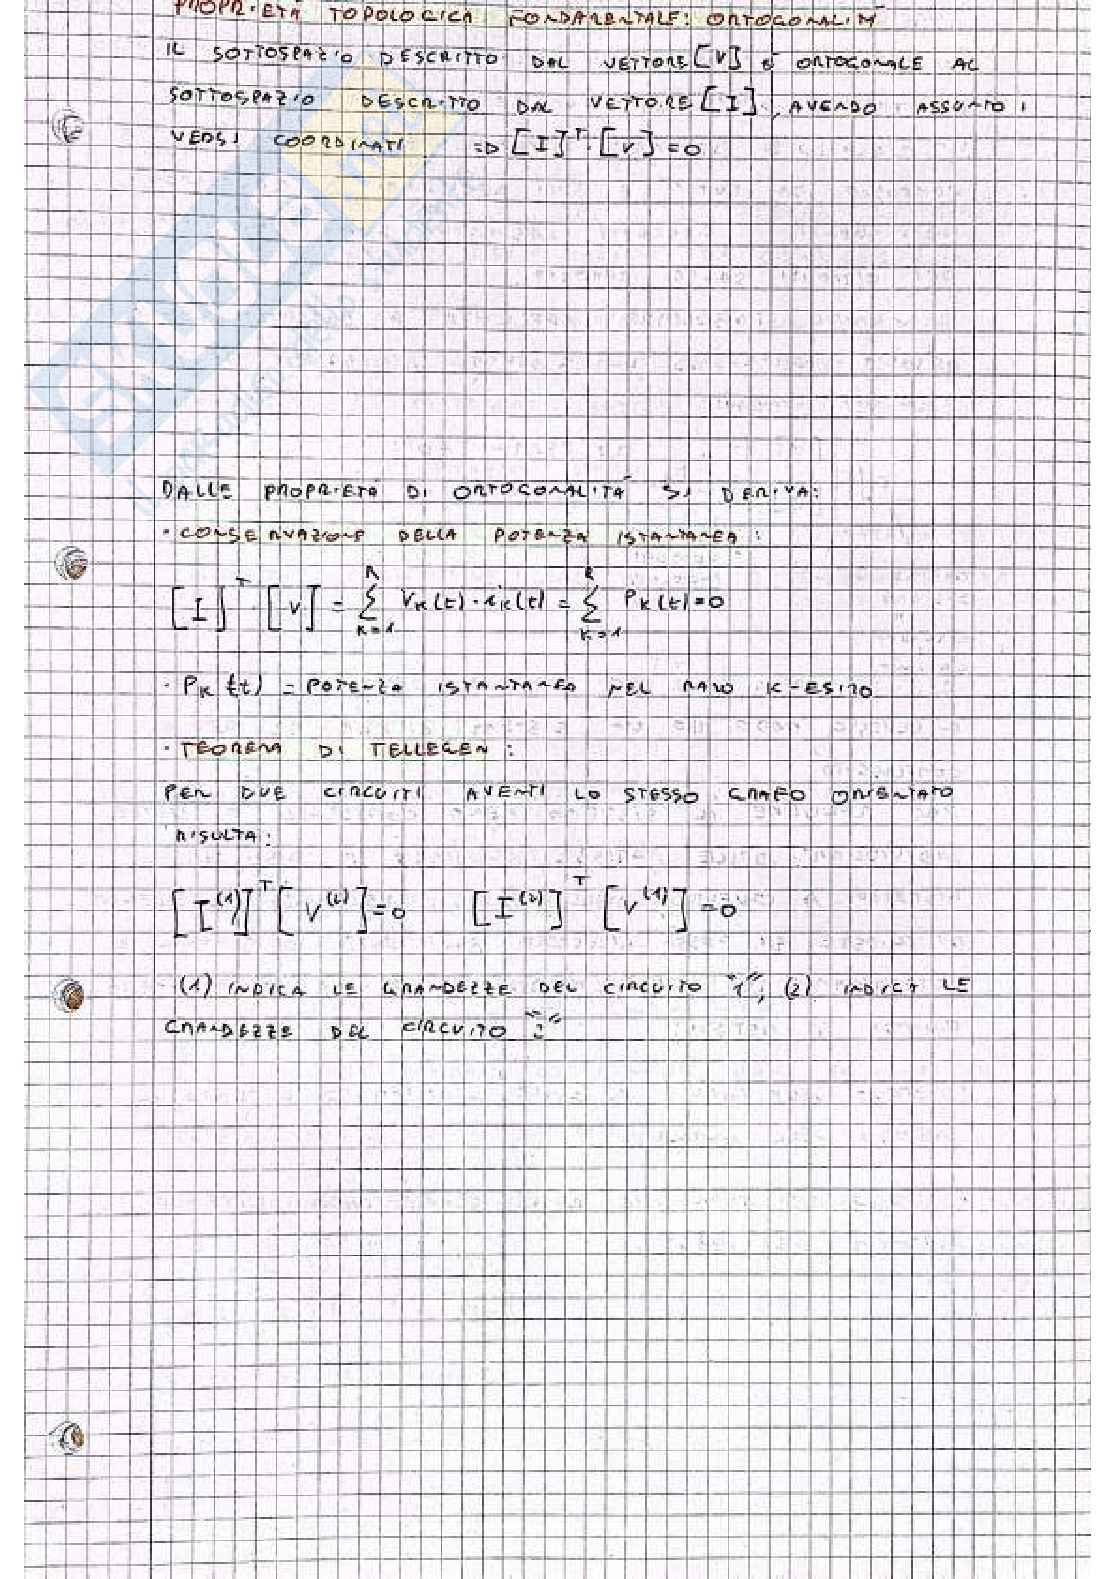 PROPRIETÀ TOPOLOGICA FONDAMENTALE: ORTOGONALITÀ
IL SOTTOSPAZIO DESCRITTO DAL VETTORE [V] È ORTOGONALE AL
SOTTOSPAZIO DESCRITTO DAL VETTORE [I], AVENDO ASSUNTO I
VERSI COORDINATI => [I]^T · [V] = 0
DALLE PROPRIETÀ DI ORTOGONALITÀ SI DERIVA:
· CONSERVAZIONE DELLA POTENZA ISTANTANEA:
[I]^T [V] = Σ_{K=1}^{R} V_K(t) · i_K(t) = Σ_{K=1}^{R} P_K(t) = 0
· P_K(t) = POTENZA ISTANTANEA NEL RAMO K-ESIMO
· TEOREMA DI TELLEGEN:
PER DUE CIRCUITI AVENTI LO STESSO GRAFO ORIENTATO
RISULTA:
[I^(1)]^T [V^(2)] = 0 [I^(2)]^T [V^(1)] = 0
· (1) INDICA LE GRANDEZZE DEL CIRCUITO "1", (2) INDICA LE
GRANDEZZE DEL CIRCUITO "2"